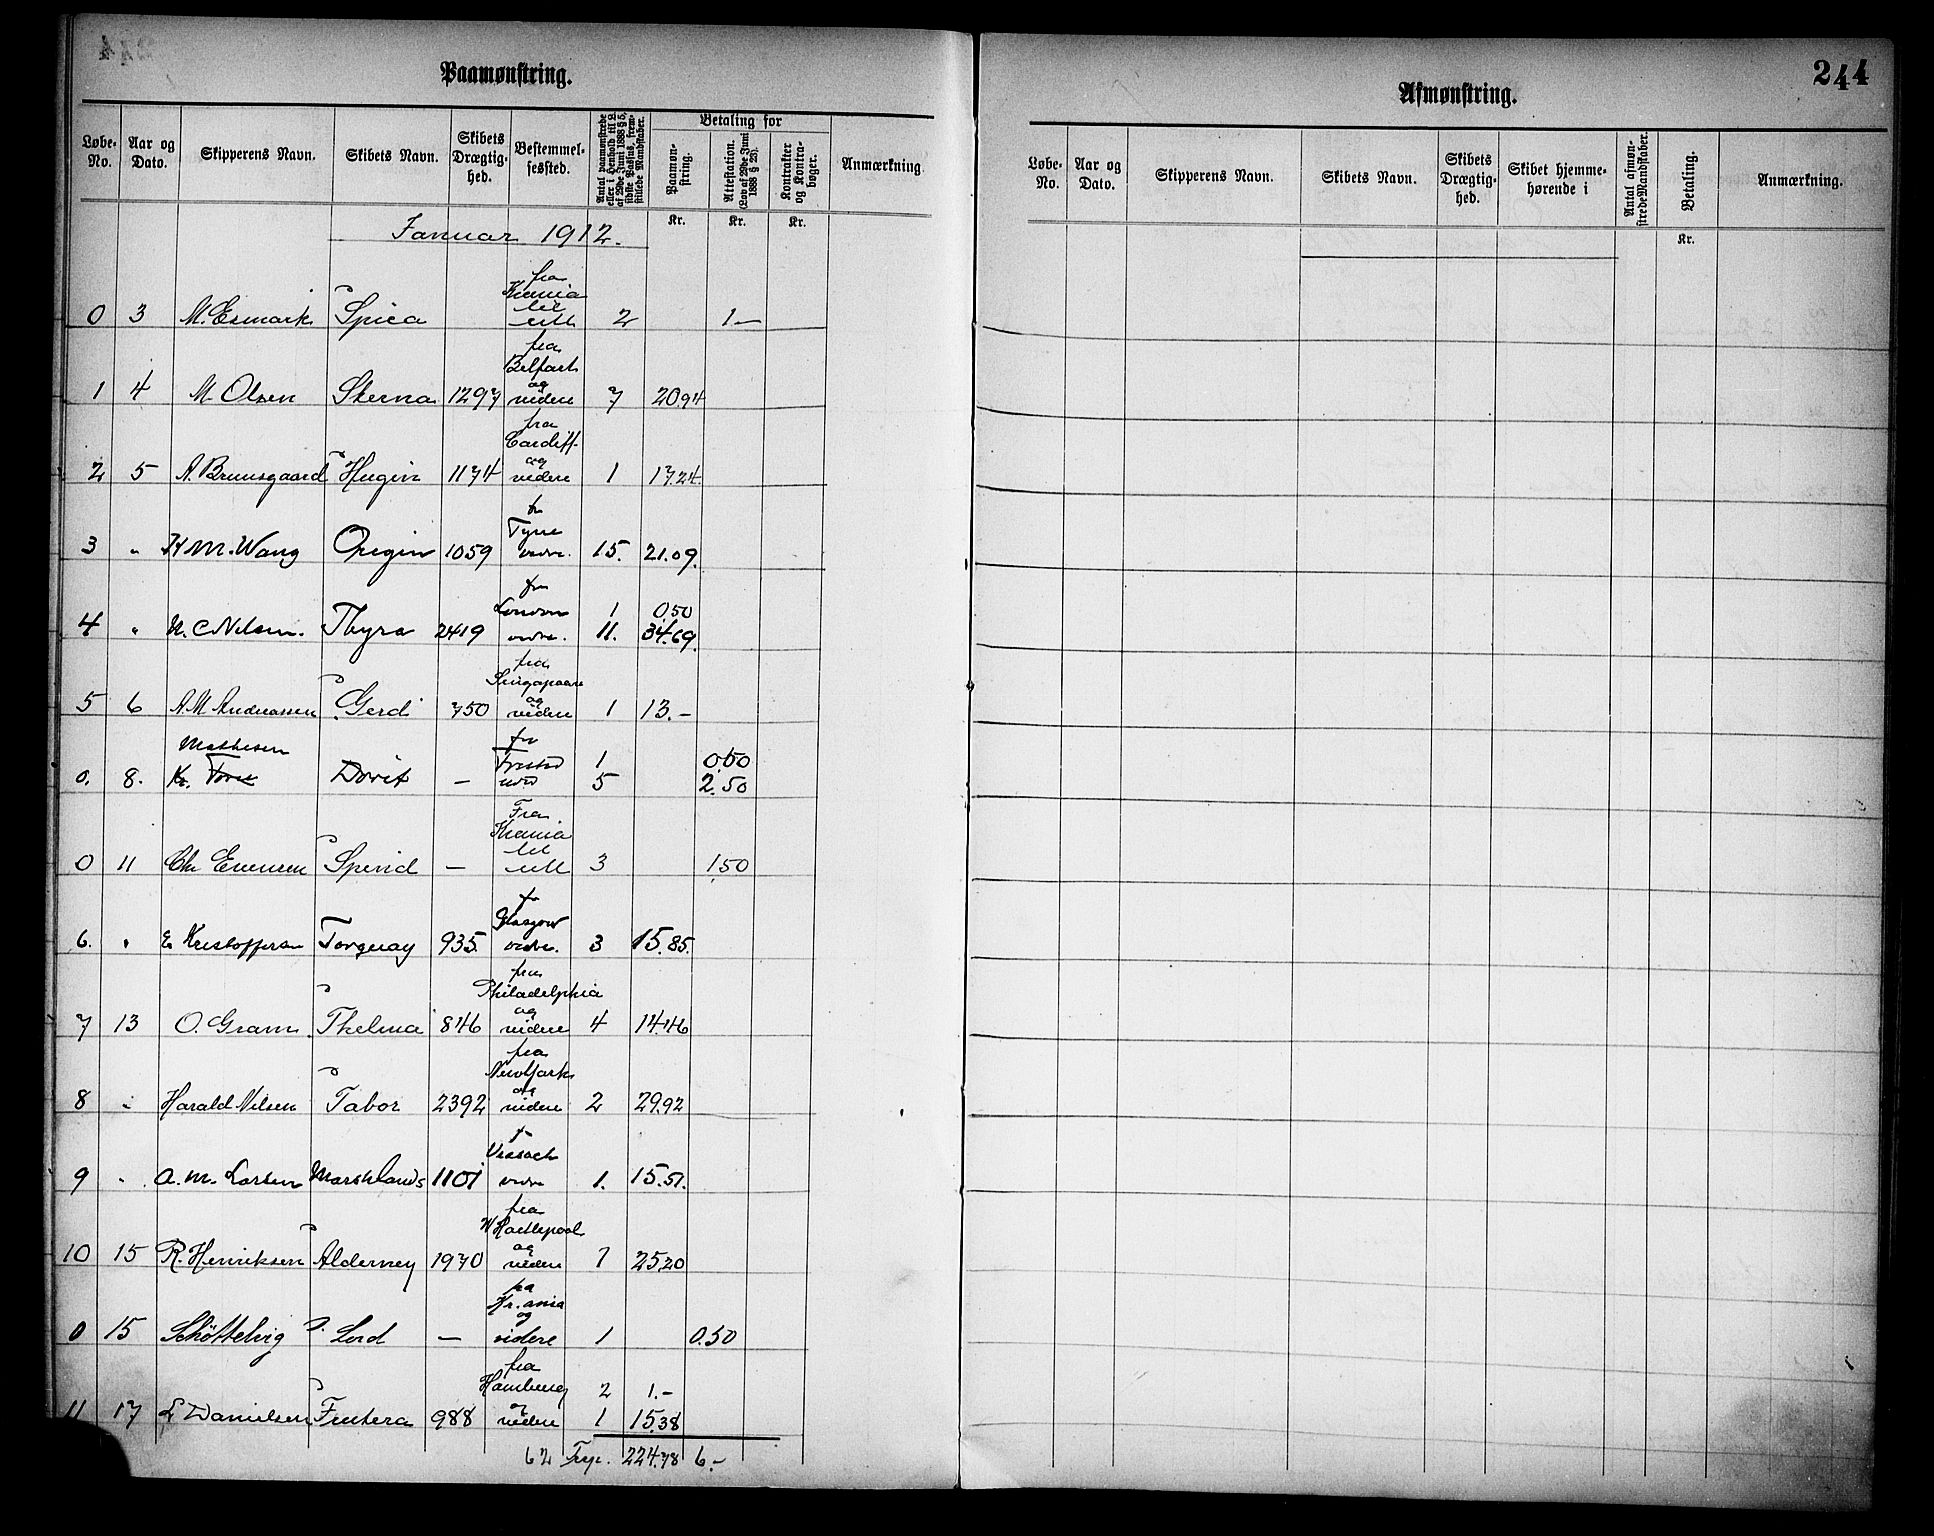 244
Paamønstring.
Løbe-No. Aar og Dato. Skipperens Navn. Skibets Navn. Skibets Drægtig-hed. Bestemmel-sessted. Antal paamønstrede eller i Henhold til L. af 29de Juni 1888 § 5, sidste Passus, frem-stillede Mandskaber. Betaling for Paamøn-string. Attestation. (Lov af 29de Juni 1888 § 23). Kontrakter og Kontra-bøger. Anmærkning
Kr. Kr. Kr.
Januar 1912.
fra
Krania
til
0 3 M. Esmark Spica 2 1.—
fra
Belfast
og
1 4 M Olsen Sterna 1297 videre 7 20.94
fra
Cardiff
og
2 5 A. Bruusgaard Hugin 1174 videre 1 17.24
fr
Tyne
3 " K M. Wang Origin 1059 vidre. 15. 21.09.
fra
London 1 0.50
4 " N. C Nilsen. Thyra 2419 vidre. 11. 34.69.
fra
Singapoore
og
5 6 A. M Andreassen Gerdi 750 videre 1 13.—
Mathesen fra
1 0.50
0. 8. Kr. Dovit — 5 2.50
Fra
Krania
til
0 11 Chr Evensen Spenid — 3 1.50
fr
Glasgow
6. " E Kristoffersen Torquay 935. vidre. 3 15.85.
fra
Philadelphia
og
7 13 O. Gram Thelma 846 videre 4 14.46
fra
NewYork
og
8 " Harald Nilsen Tabor 2392 videre 2 29.92
f
9 " A. M. Larsen Marshlands 1101 vidre 1. 15.51.
fra
W Hartlepool
og
10 15 R. Henriksen Alderney 1970 videre 1 25.20
fra
Kr.ania
og
0 15 Schøttelvig Lord — videre 1 0.50
fra
Hamburg 2 1.—
og
11 17 L Danielsen Frutera 988 videre 1 15.38
62 224.78 6.—
244
Afmønstring.
Løbe-No. Aar og Dato. Skipperens Navn. Skibets Navn. Skibets Drægtig-hed. Skibet hjemme-hørende i Antal afmøn-strede Mandskaber. Betaling. Anmærkning.
Kr.